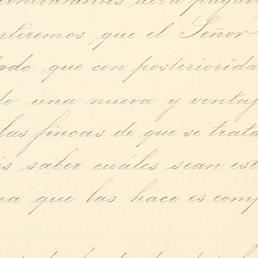 rtiremos que el Señor
ado que con posteriorida
do una nueva y ventaj
las fincas de que se trata
es saber cuáles sean est
na que las hace es comp